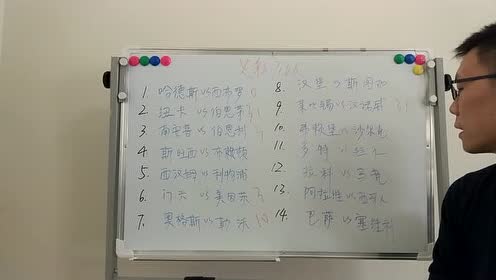 1. 哈德斯vs西布罗
2. 纽卡vs伯恩茅
3. 南安普vs伯恩利
4. 斯旺西vs布赖顿
5. 西汉姆vs利物浦
6. 门兴vs美因茨
7. 奥格斯vs勒沃
8. 汉堡vs斯图加
9. 莱比锡vs汉诺威
10. 弗赖堡vs沙尔克
11. 多特vs拜仁
12. 拉科vs马竞
13. 阿拉维vs西班人
14. 巴萨vs塞维利